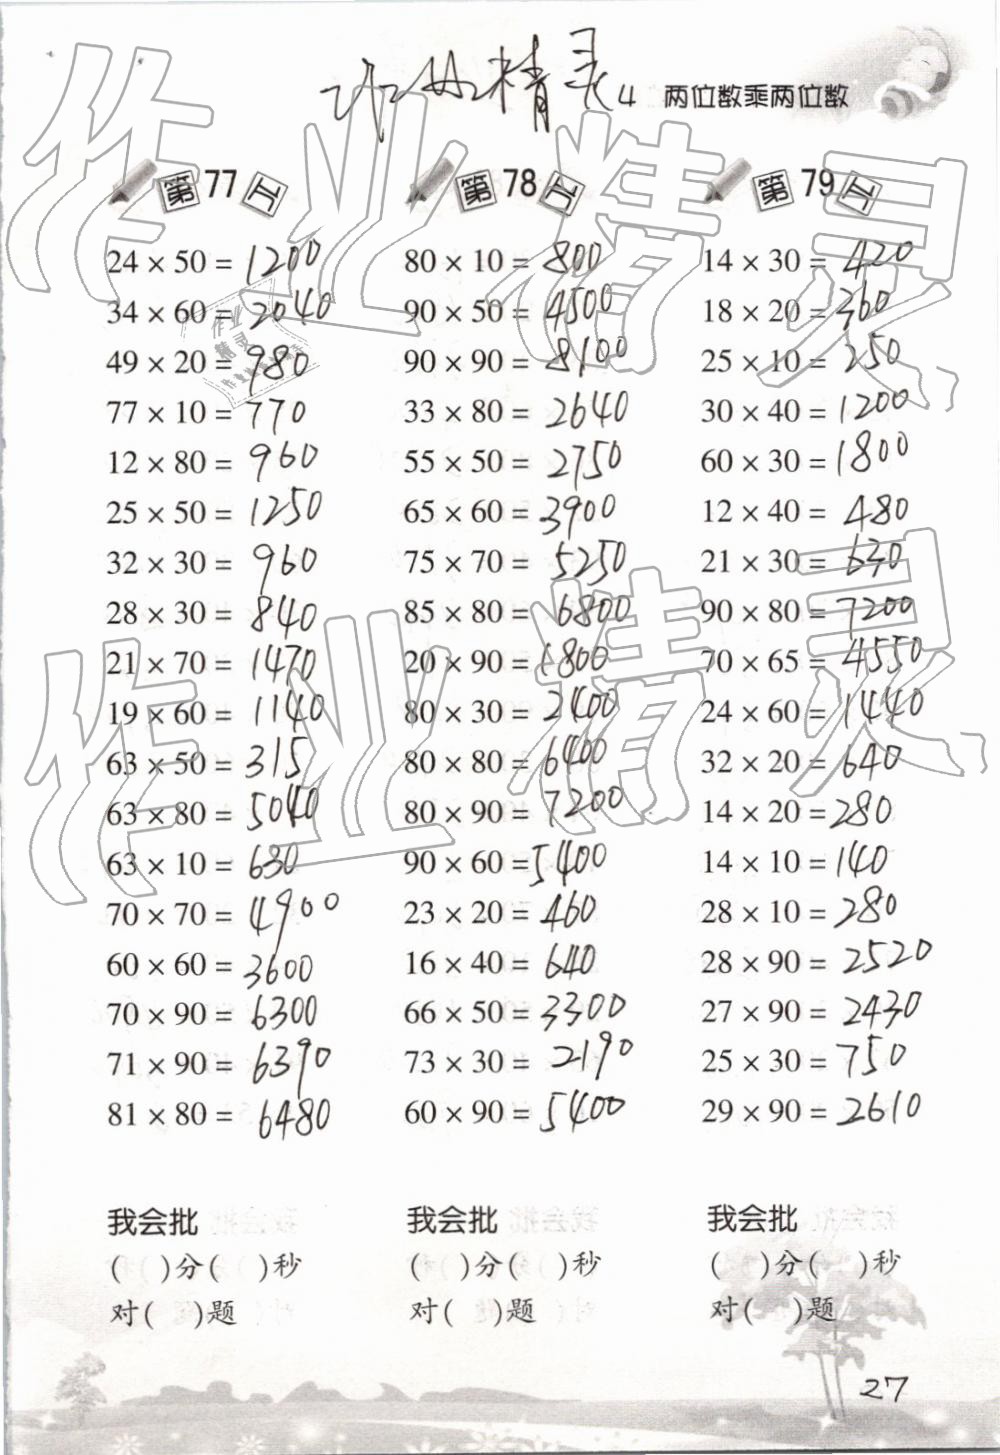 作业精灵
4 两位数乘两位数
第77天
24 × 50 = 1200
34 × 60 = 2040
49 × 20 = 980
77 × 10 = 770
12 × 80 = 960
25 × 50 = 1250
32 × 30 = 960
28 × 30 = 840
21 × 70 = 1470
19 × 60 = 1140
63 × 50 = 315
63 × 80 = 5040
63 × 10 = 630
70 × 70 = 4900
60 × 60 = 3600
70 × 90 = 6300
71 × 90 = 6390
81 × 80 = 6480
我会批
( )分( )秒
对( )题
第78天
80 × 10 = 800
90 × 50 = 4500
90 × 90 = 8100
33 × 80 = 2640
55 × 50 = 2750
65 × 60 = 3900
75 × 70 = 5250
85 × 80 = 6800
20 × 90 = 1800
80 × 30 = 2400
80 × 80 = 6400
80 × 90 = 7200
90 × 60 = 5400
23 × 20 = 460
16 × 40 = 640
66 × 50 = 3300
73 × 30 = 2190
60 × 90 = 5400
我会批
( )分( )秒
对( )题
第79天
14 × 30 = 420
18 × 20 = 360
25 × 10 = 250
30 × 40 = 1200
60 × 30 = 1800
12 × 40 = 480
21 × 30 = 630
90 × 80 = 7200
70 × 65 = 4550
24 × 60 = 1440
32 × 20 = 640
14 × 20 = 280
14 × 10 = 140
28 × 10 = 280
28 × 90 = 2520
27 × 90 = 2430
25 × 30 = 750
29 × 90 = 2610
我会批
( )分( )秒
对( )题
27
作业精灵
作业精灵